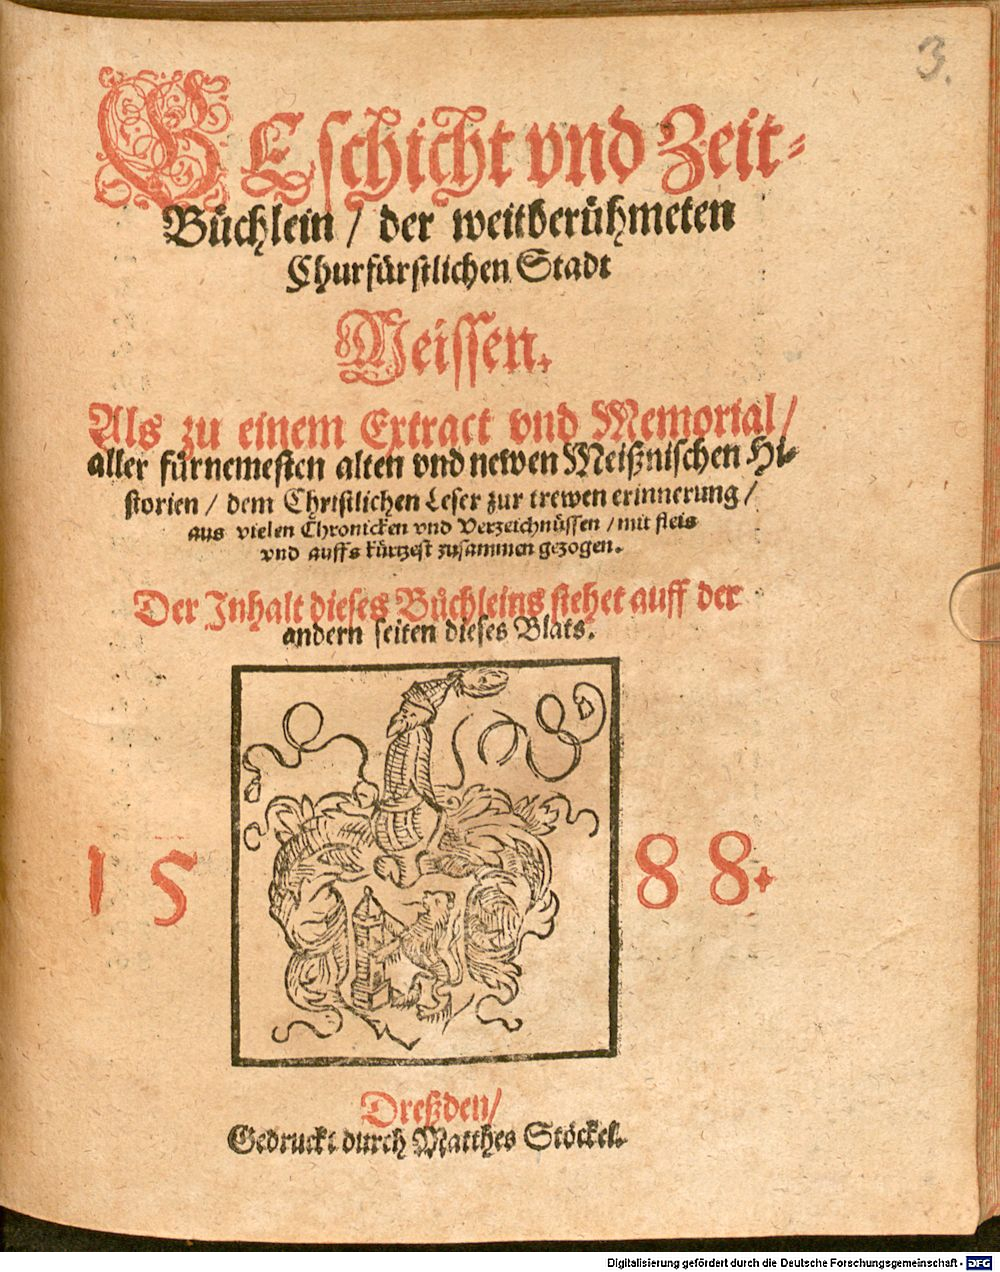 3.
GEschicht vnd Zeit-
Büchlein / der weitberühmeten
Churfürstlichen Stadt
Meissen.
Als zu einem Extract vnd Memorial /
aller fürnemesten alten vnd newen Meißnischen Hi-
storien / dem Christlichen Leser zur trewen erinnerung /
aus vielen Chronicken vnd Verzeichnüssen / mit fleis
vnd auffs kürtzest zusammen gezogen.
Der Inhalt dieses Büchleins stehet auff der
andern seiten dieses Blats.
15 88.
Dreßden /
Gedruckt durch Matthes Stöckel.
Digitalisierung gefördert durch die Deutsche Forschungsgemeinschaft - DFG